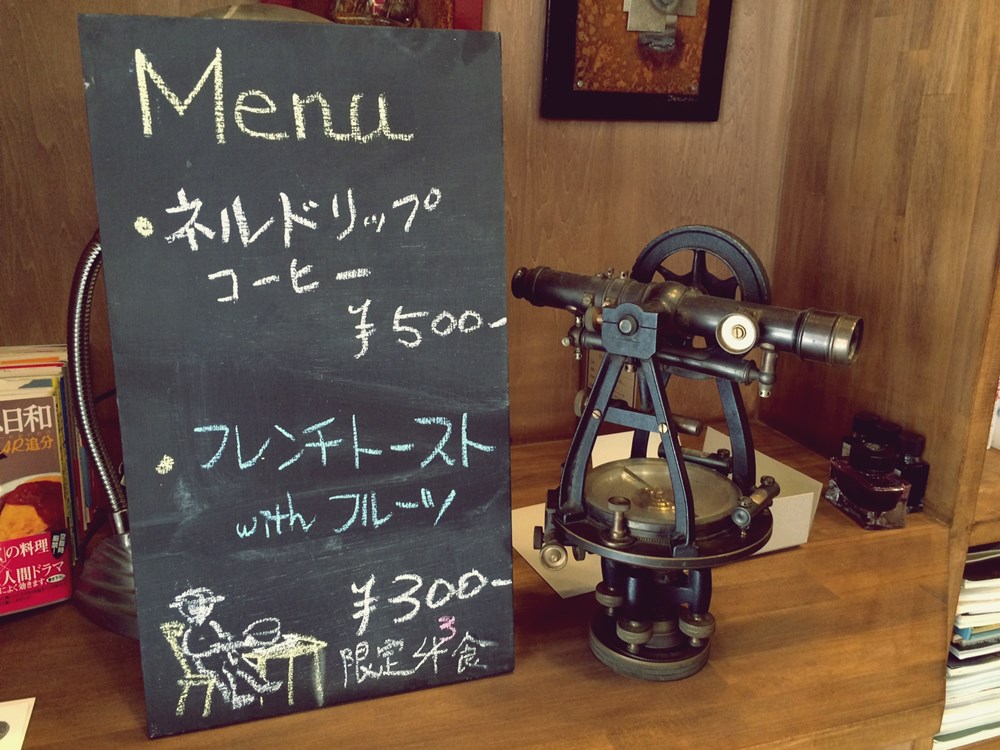 Menu
・ネルドリップ
コーヒー
¥500-
・フレンチトースト
with フルーツ
¥300-
限定4食
3
日和
AR追分
の料理
人間ドラマ
によく効きます。